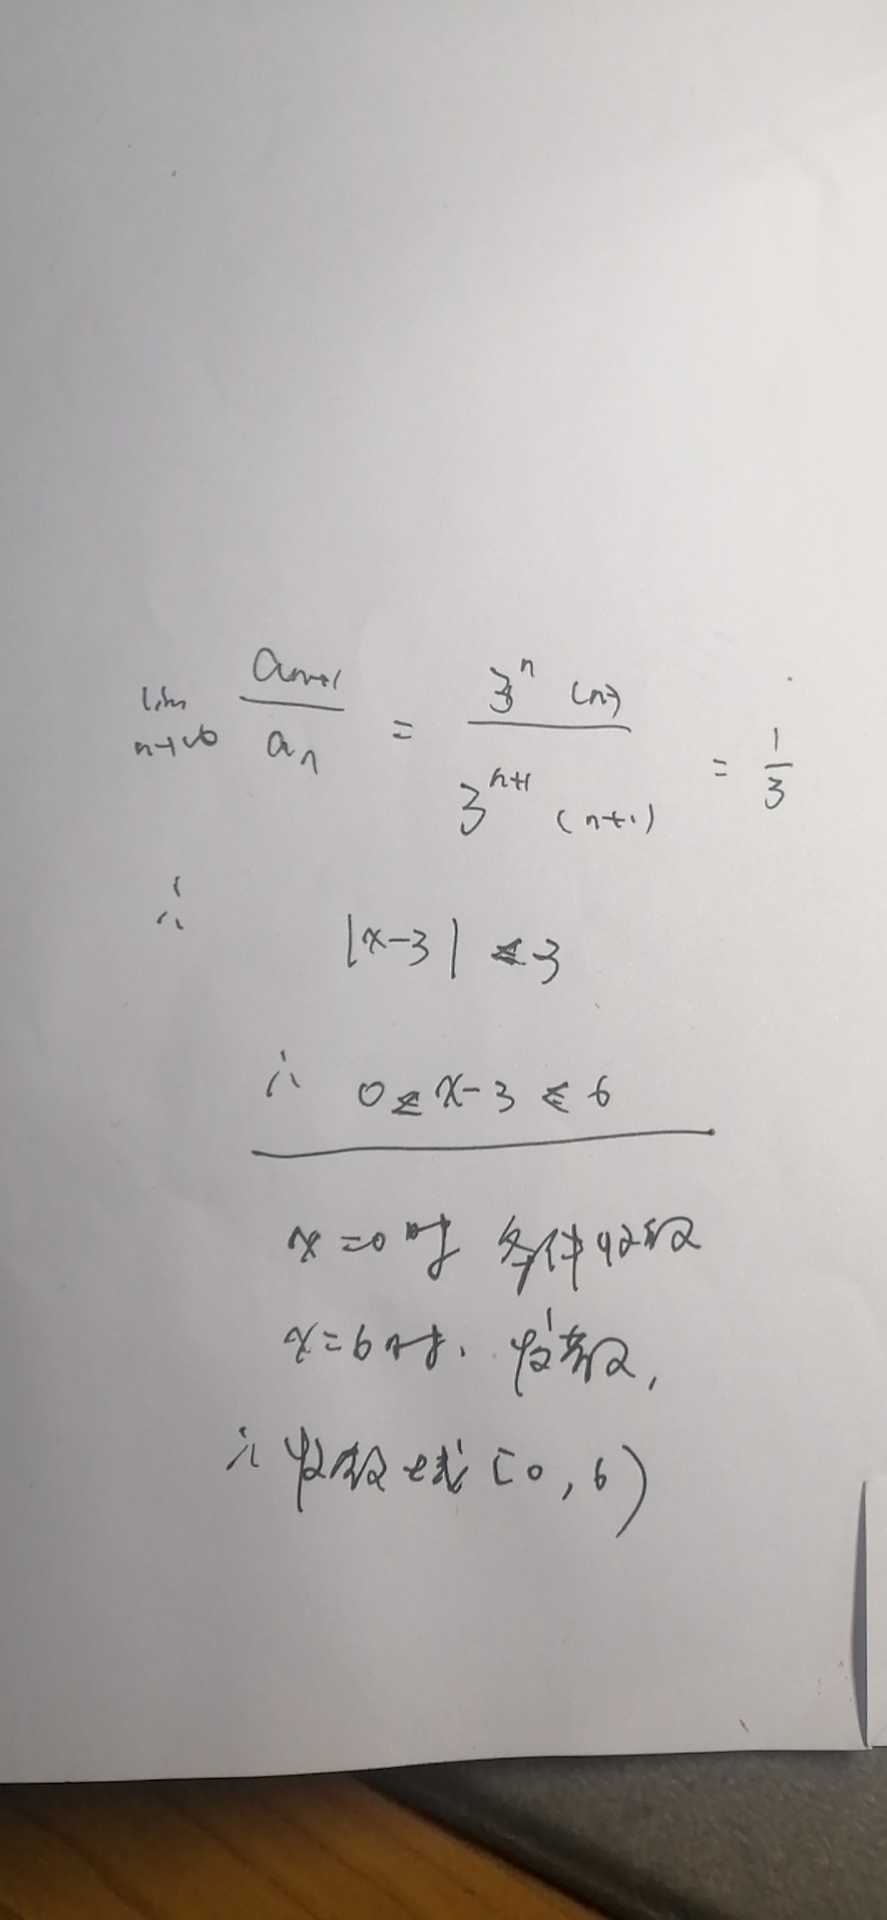 lim n→∞ aₙ₊₁/aₙ = 3ⁿ (n) / 3ⁿ⁺¹ (n+1) = 1/3
∴ |x-3| < 3
∴ 0 ≤ x-3 ≤ 6
x=0时 条件收敛
x=6时. 发散,
∴ 收敛域 [0, 6)